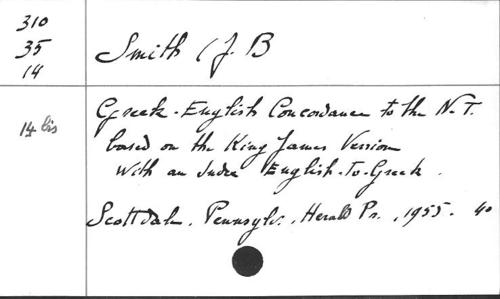 310
35
14
Smith (J B
14 bis
Greek-English Concordance to the N.T.
based on the King James Version
With an Index English-to-Greek.
Scottdale, Pennsylv., Herald Pr., 1955. 40